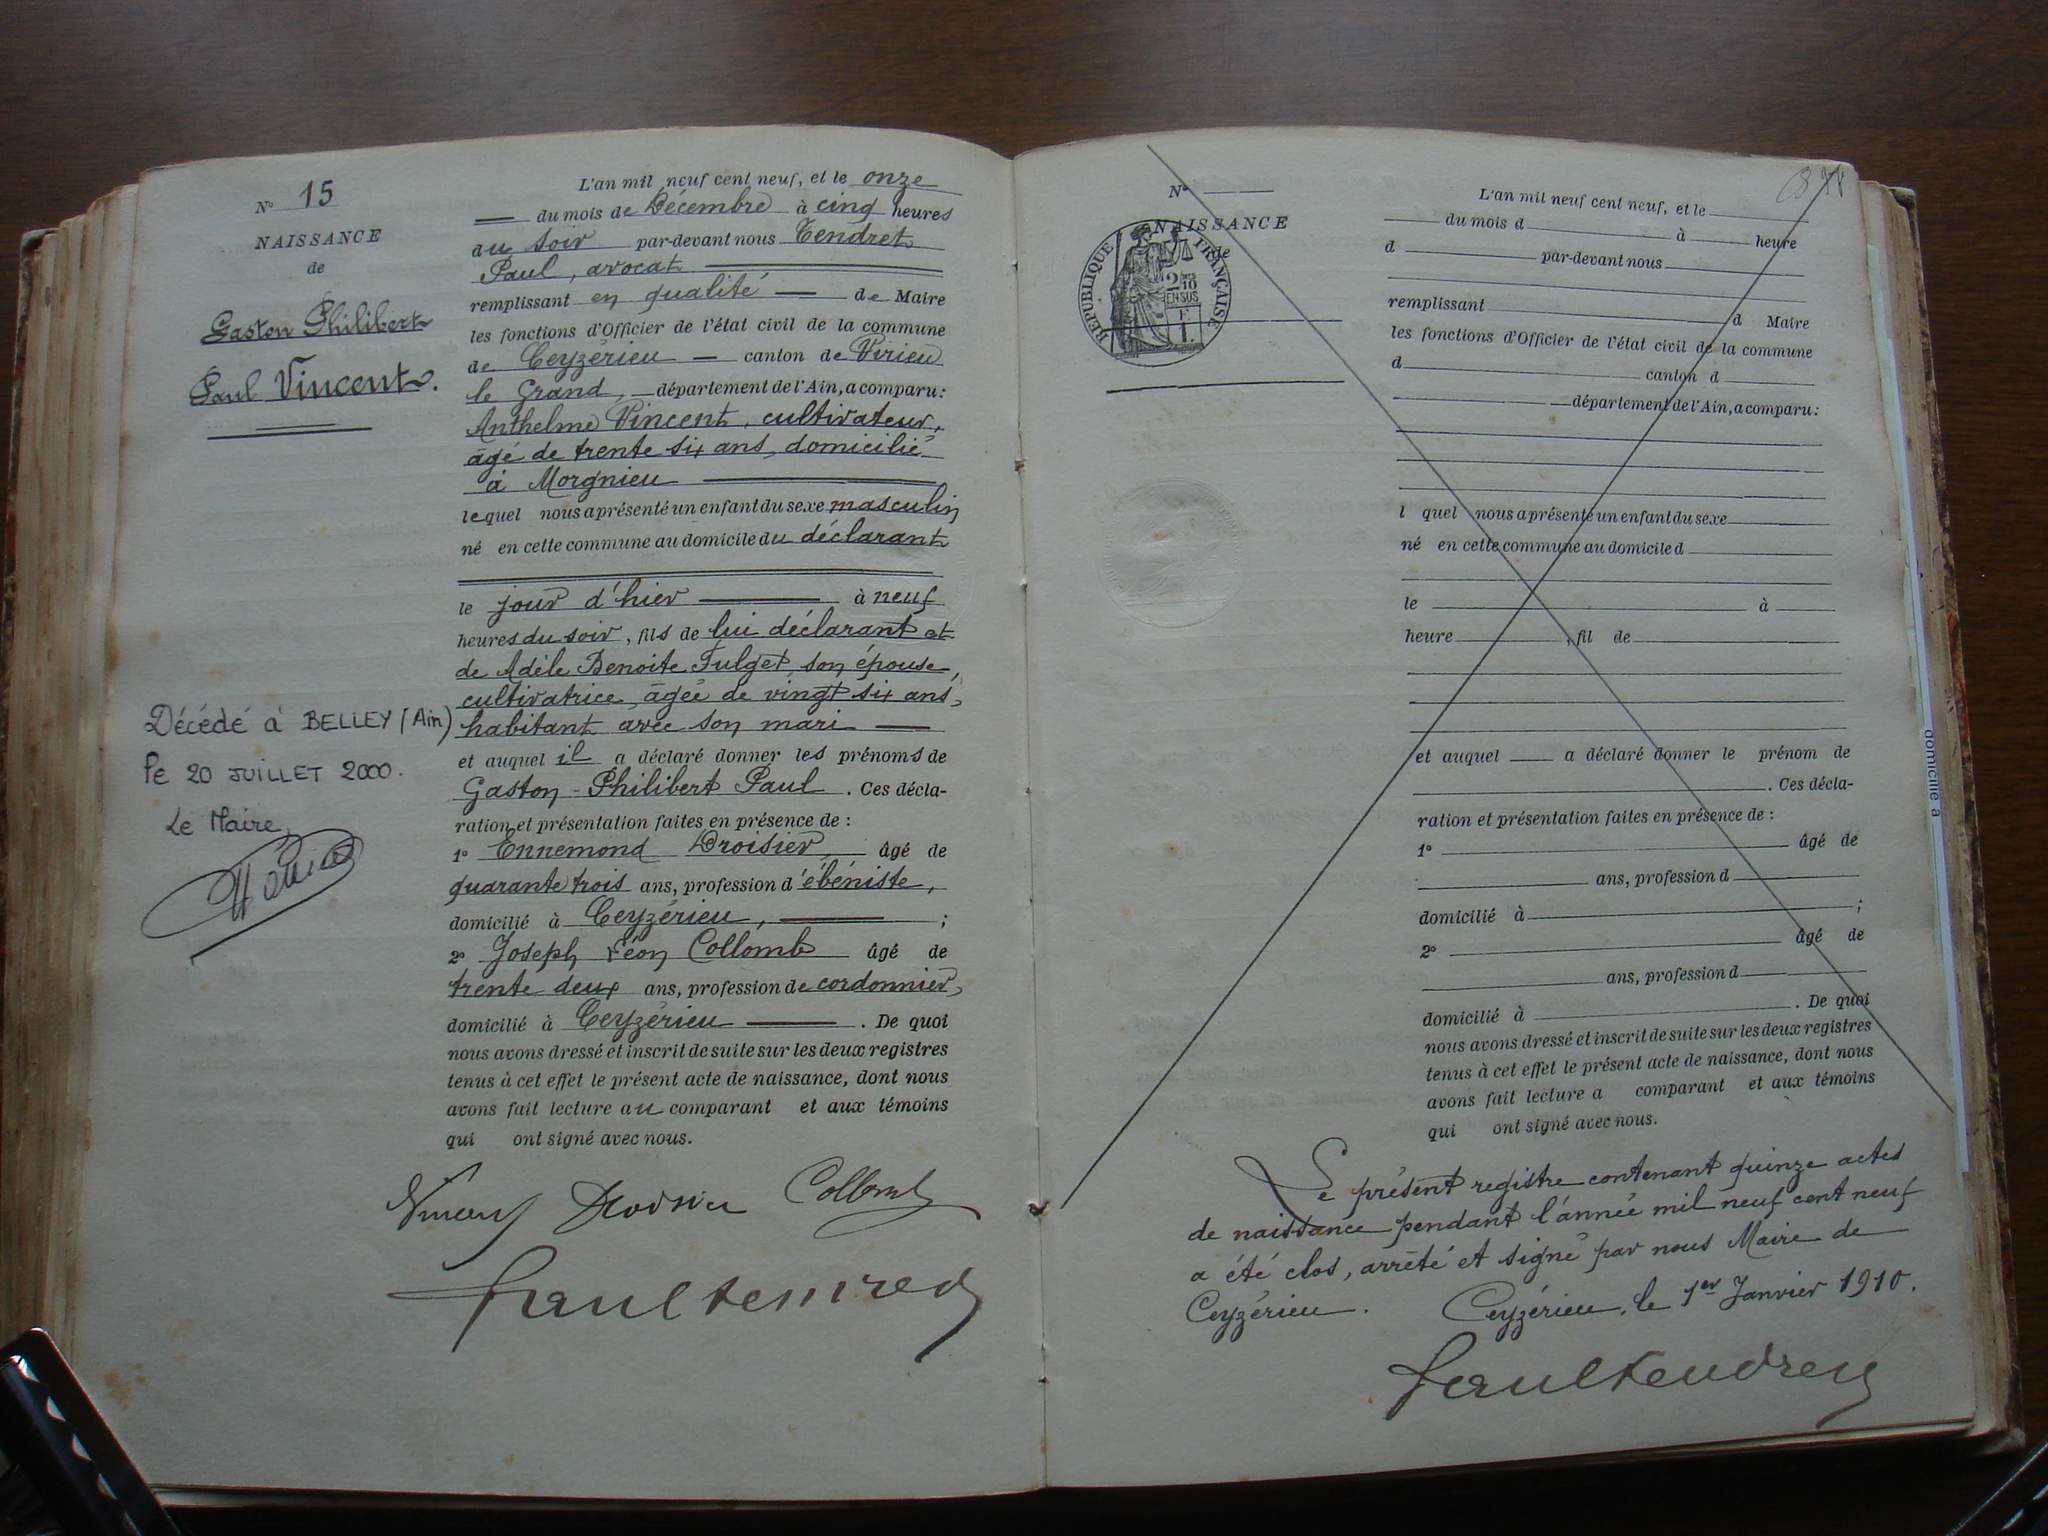 N° 15
NAISSANCE
de
Gaston Philibert
Paul Vincent.
Décédé à BELLEY (Ain)
le 20 JUILLET 2000.
Le Maire,
L'an mil neuf cent neuf, et le onze
du mois de Décembre à cinq heures
du soir par-devant nous Tendret
Paul, avocat
remplissant en qualité de Maire
les fonctions d'Officier de l'état civil de la commune
de Ceyzérieu canton de Virieu
le Grand, département de l'Ain, a comparu:
Anthelme Vincent, cultivateur,
âgé de trente six ans, domicilié
à Morgnieu
lequel nous a présenté un enfant du sexe masculin
né en cette commune au domicile du déclarant
le jour d'hier à neuf
heures du soir, fils de lui déclarant et
de Adèle Benoite Fulget son épouse,
cultivatrice, âgée de vingt six ans,
habitant avec son mari
et auquel il a déclaré donner les prénoms de
Gaston-Philibert Paul. Ces décla-
ration et présentation faites en présence de :
1° Ennemond Droisier, âgé de
quarante trois ans, profession d'ébéniste,
domicilié à Ceyzérieu, ;
2° Joseph Léon Collomb âgé de
trente deux ans, profession de cordonnier,
domicilié à Ceyzérieu . De quoi
nous avons dressé et inscrit de suite sur les deux registres
tenus à cet effet le présent acte de naissance, dont nous
avons fait lecture au comparant et aux témoins
qui ont signé avec nous.
Vincent Droisier Collomb
Paul Tendret
N°
NAISSANCE
de
REPUBLIQUE FRANÇAISE
2/10 EN SUS
F
1.
L'an mil neuf cent neuf, et le
du mois d à heure
d par-devant nous
remplissant d Maire
les fonctions d'Officier de l'état civil de la commune
d canton d
département de l'Ain, a comparu:
l quel nous a présenté un enfant du sexe
né en cette commune au domicile d
le à
heure , fil de
et auquel a déclaré donner le prénom de
. Ces décla-
ration et présentation faites en présence de :
1° âgé de
ans, profession d
domicilié à ;
2° âgé de
ans, profession d
domicilié à . De quoi
nous avons dressé et inscrit de suite sur les deux registres
tenus à cet effet le présent acte de naissance, dont nous
avons fait lecture a comparant et aux témoins
qui ont signé avec nous.
Le présent registre contenant quinze actes
de naissance pendant l'année mil neuf cent neuf
a été clos, arrêté et signé par nous Maire de
Ceyzérieu. Ceyzérieu, le 1er Janvier 1910.
Paul Tendret
domicilié à